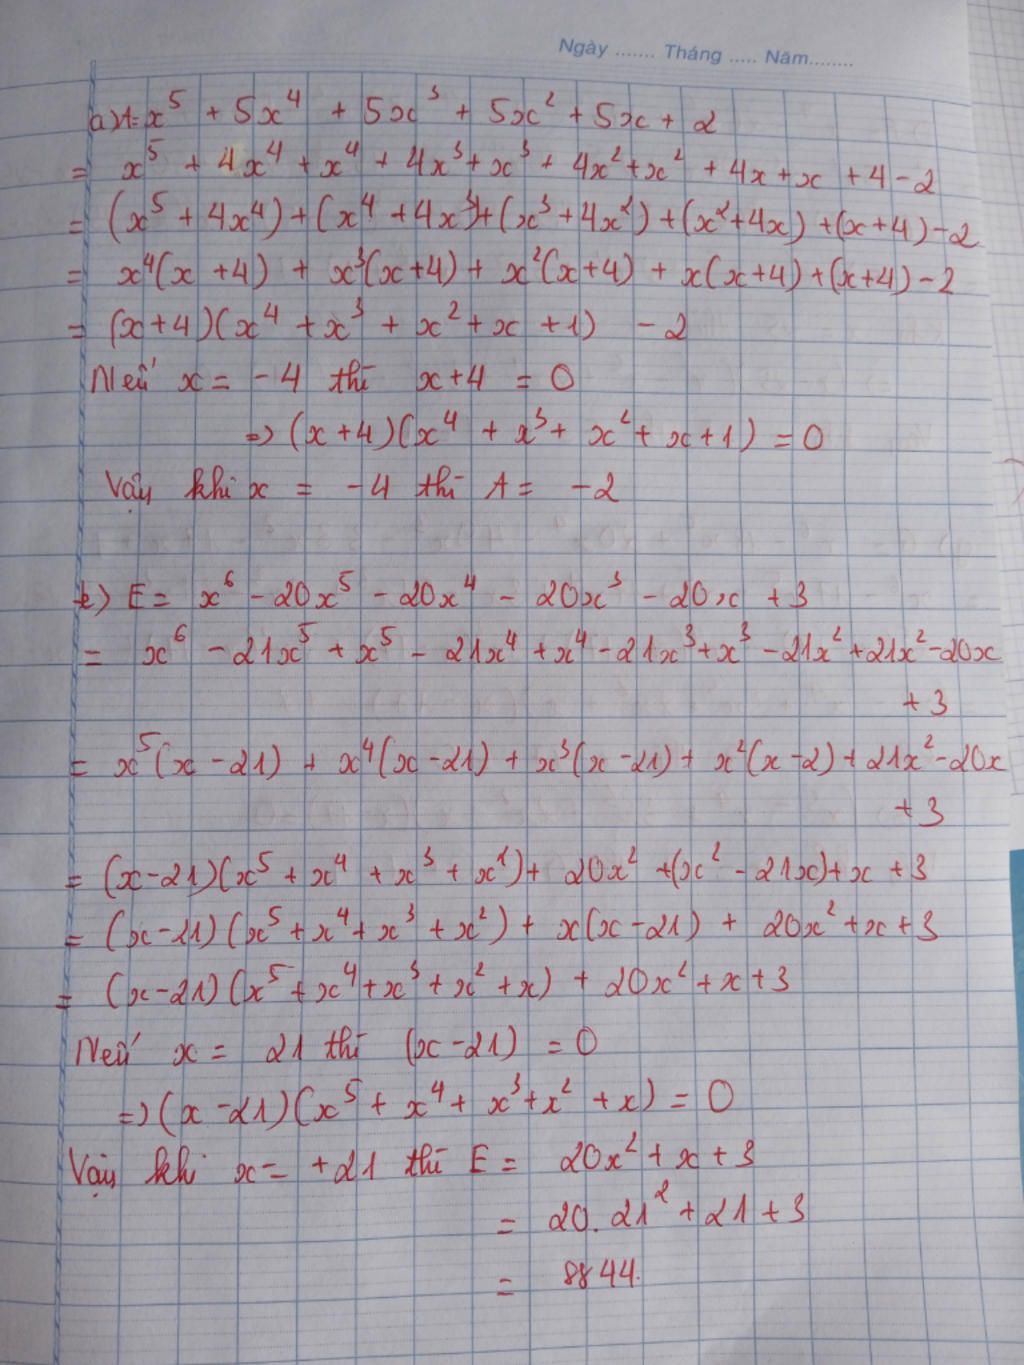 Ngày ....... Tháng ..... Năm........
a) A = x⁵ + 5x⁴ + 5x³ + 5x² + 5x + 2
= x⁵ + 4x⁴ + x⁴ + 4x³ + x³ + 4x² + x² + 4x + x + 4 - 2
= (x⁵ + 4x⁴) + (x⁴ + 4x³) + (x³ + 4x²) + (x² + 4x) + (x + 4) - 2
= x⁴(x + 4) + x³(x + 4) + x²(x + 4) + x(x + 4) + (x + 4) - 2
= (x + 4)(x⁴ + x³ + x² + x + 1) - 2
Nếu x = -4 thì x + 4 = 0
=> (x + 4)(x⁴ + x³ + x² + x + 1) = 0
Vậy khi x = -4 thì A = -2
b) E = x⁶ - 20x⁵ - 20x⁴ - 20x³ - 20x + 3
= x⁶ - 21x⁵ + x⁵ - 21x⁴ + x⁴ - 21x³ + x³ - 21x² + 21x² - 20x
+ 3
= x⁵(x - 21) + x⁴(x - 21) + x³(x - 21) + x²(x - 2) + 21x² - 20x
+ 3
= (x - 21)(x⁵ + x⁴ + x³ + x²) + 20x² + (x² - 21x) + x + 3
= (x - 21)(x⁵ + x⁴ + x³ + x²) + x(x - 21) + 20x² + x + 3
= (x - 21)(x⁵ + x⁴ + x³ + x² + x) + 20x² + x + 3
Nếu x = 21 thì (x - 21) = 0
=> (x - 21)(x⁵ + x⁴ + x³ + x² + x) = 0
Vậy khi x = +21 thì E = 20x² + x + 3
= 20.21² + 21 + 3
= 8844.